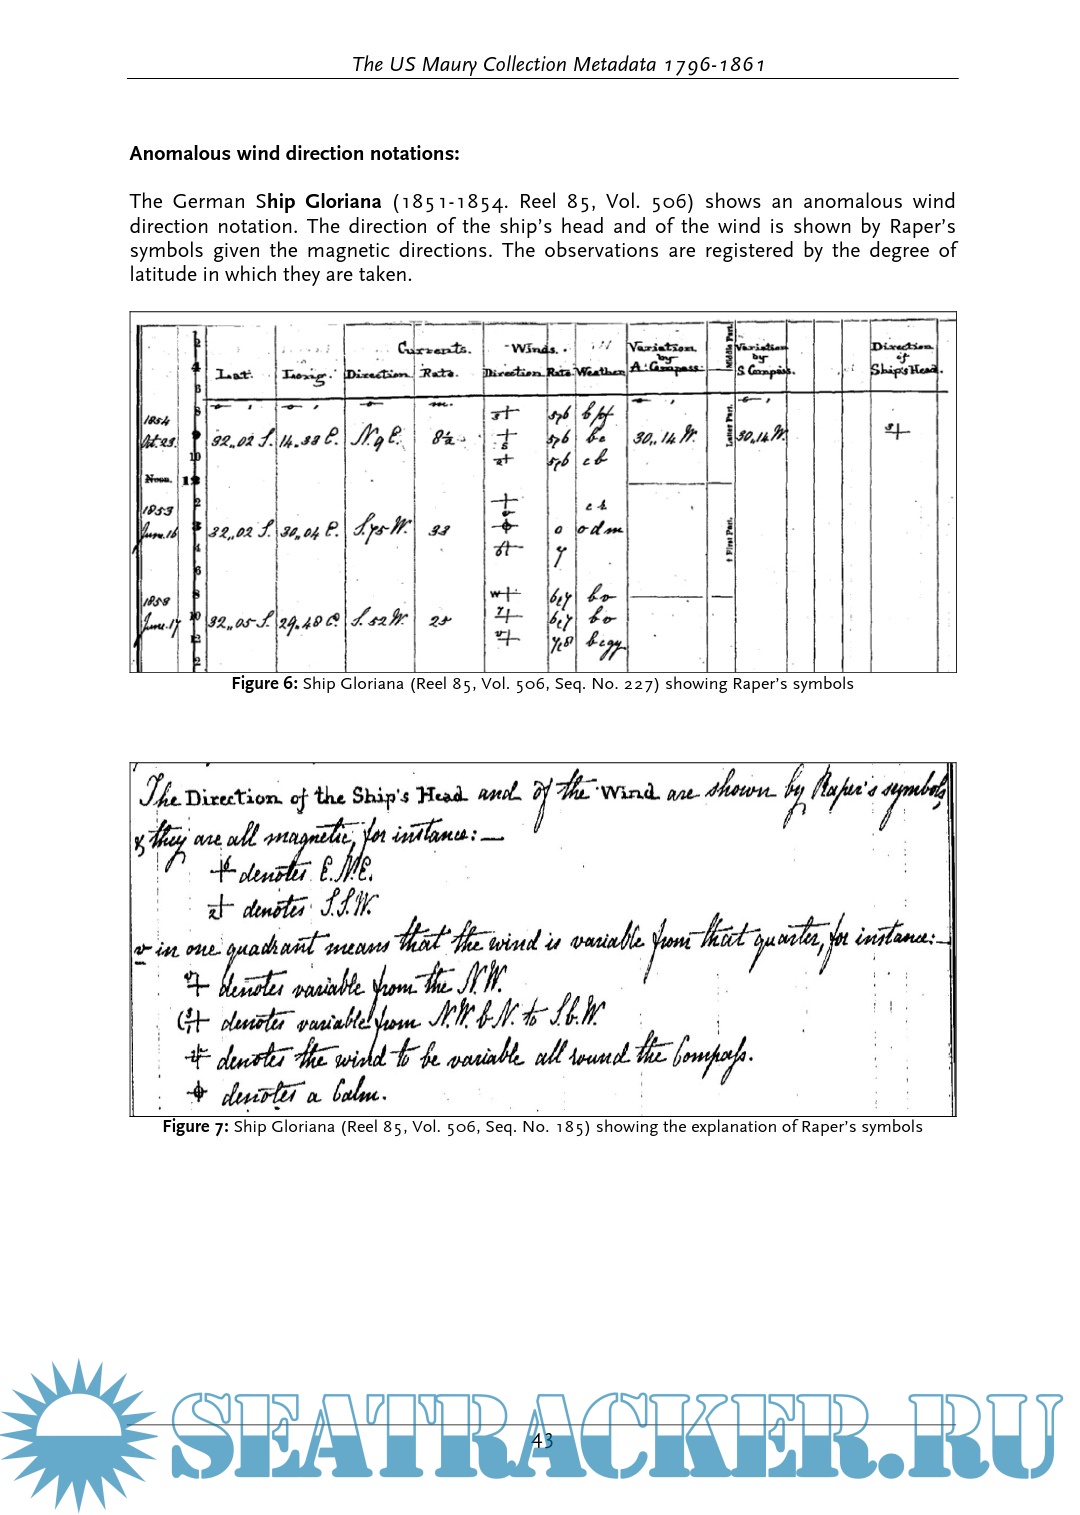 The US Maury Collection Metadata 1796-1861
Anomalous wind direction notations:
The German Ship Gloriana (1851-1854. Reel 85, Vol. 506) shows an anomalous wind
direction notation. The direction of the ship's head and of the wind is shown by Raper's
symbols given the magnetic directions. The observations are registered by the degree of
latitude in which they are taken.
Lat. Long. Currents. Direction Rate. Winds. Direction Rate Weather Variation by A. Compass. Middle Part. Variation by S Compass. Direction of Ship's Head.
1854
Oct. 23. 32,,02 S. 14.38 E. N. 9 E. 8½ 5,,6 b c 30,,14 W. Latter Part. 30,,14 W.
5,,6 c b
Noon.
1853
June.16 32,,02 S. 30,,04 E. S. 75 W. 33 0 o d m † First Part.
7
June.17 32,,05 S. 29.48 E. S. 52 W. 25 6,,7 b c
Figure 6: Ship Gloriana (Reel 85, Vol. 506, Seq. No. 227) showing Raper's symbols
The Direction of the Ship's Head and of the Wind are shown by Raper's symbols
& they are all magnetic, for instance: —
denotes E.N.E.
denotes S.S.W.
v in one quadrant means that the wind is variable from that quarter, for instance: —
denotes variable from the N.W.
denotes variable from N.W. b N. to S. b. W.
denotes the wind to be variable all round the Compass.
denotes a Calm.
Figure 7: Ship Gloriana (Reel 85, Vol. 506, Seq. No. 185) showing the explanation of Raper's symbols
43
SEATRACKER.RU